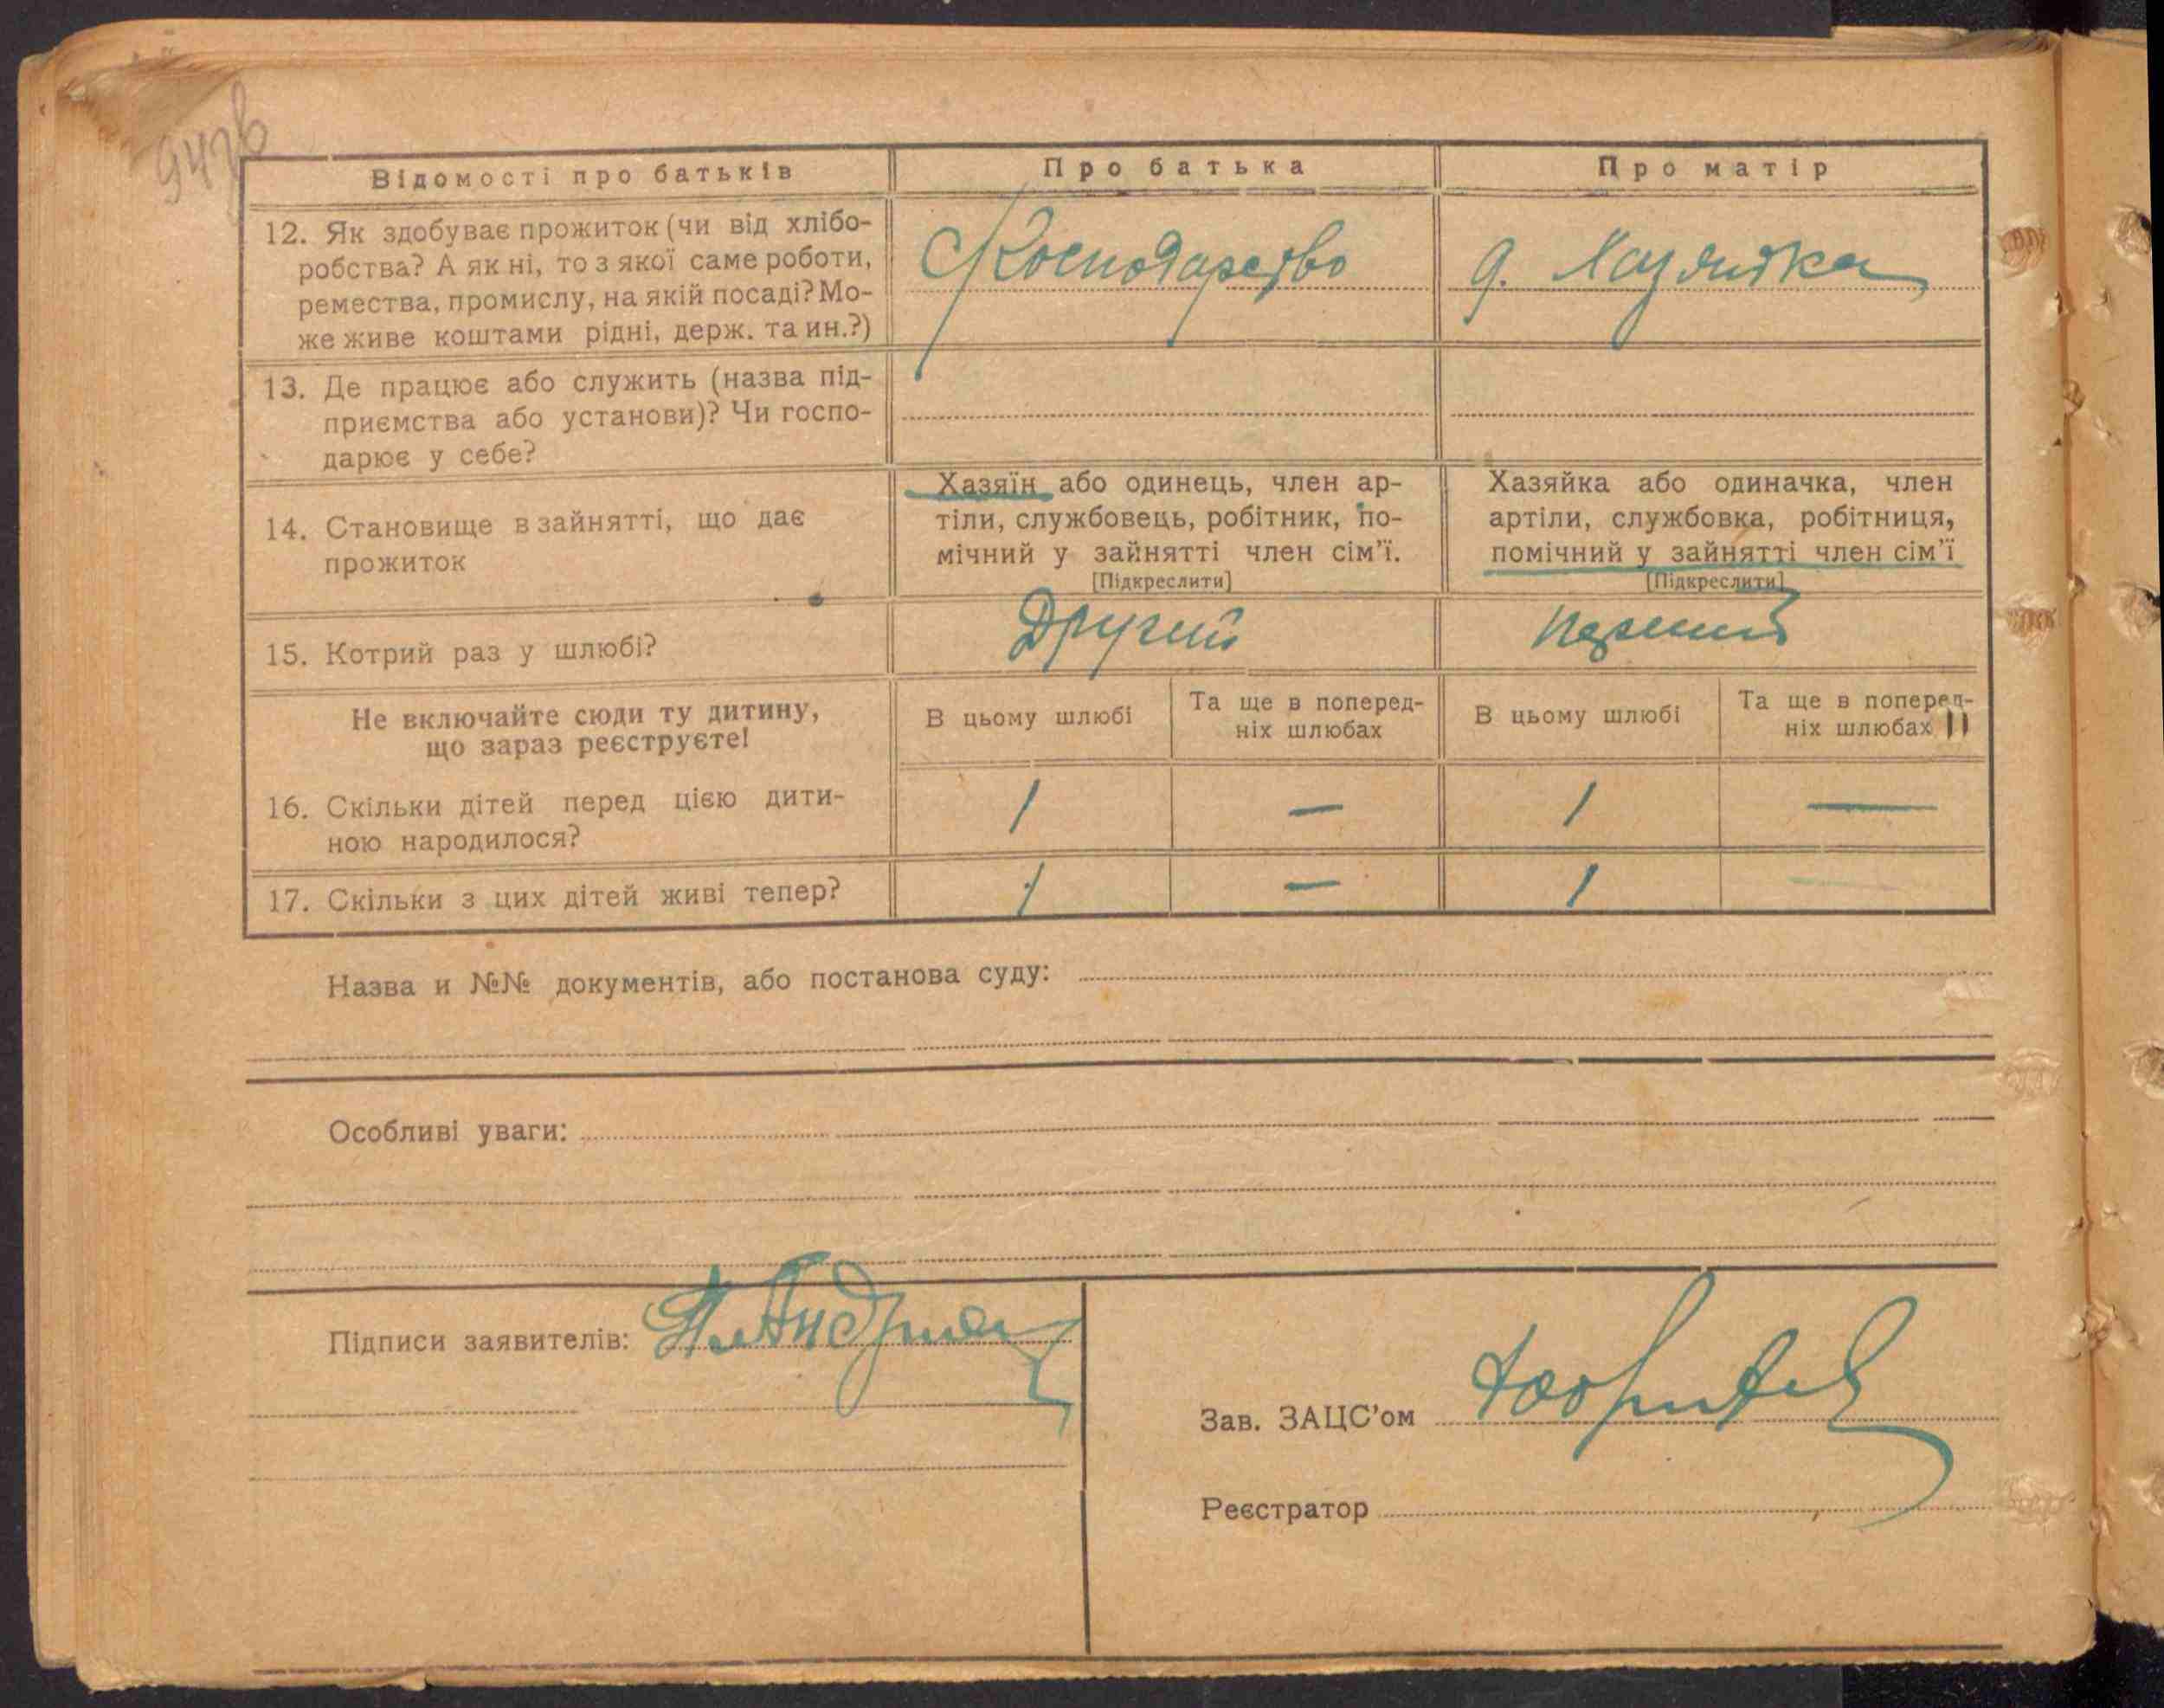 942в
Відомості про батьків
Про батька
Про матір
12. Як здобуває прожиток (чи від хлібо-
робства? А як ні, то з якої саме роботи,
ремества, промислу, на якій посаді? Мо-
же живе коштами рідні, держ. та ин.?)
Господарство
д. Хазяйка
13. Де працює або служить (назва під-
приємства або установи)? Чи госпо-
дарює у себе?
14. Становище в зайнятті, що дає
прожиток
Хазяїн або одинець, член ар-
тіли, службовець, робітник, по-
мічний у зайнятті член сім'ї.
[Підкреслити]
Хазяйка або одиначка, член
артіли, службовка, робітниця,
помічний у зайнятті член сім'ї
[Підкреслити]
15. Котрий раз у шлюбі?
Другий
Перший
Не включайте сюди ту дитину,
що зараз реєструєте!
В цьому шлюбі
Та ще в поперед-
ніх шлюбах
В цьому шлюбі
Та ще в поперед-
ніх шлюбах
16. Скільки дітей перед цією дити-
ною народилося?
1
—
1
—
17. Скільки з цих дітей живі тепер?
1
—
1
—
Назва и №№ документів, або постанова суду:
Особливі уваги:
Підписи заявителів:
Зав. ЗАЦС'ом
Реєстратор